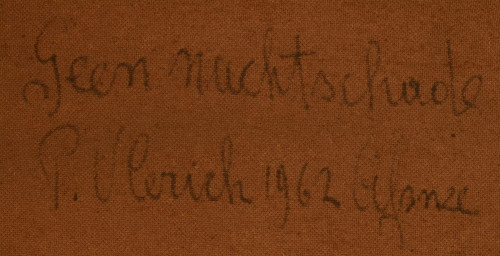 Geen nachtschade
P. Ulerich 1962